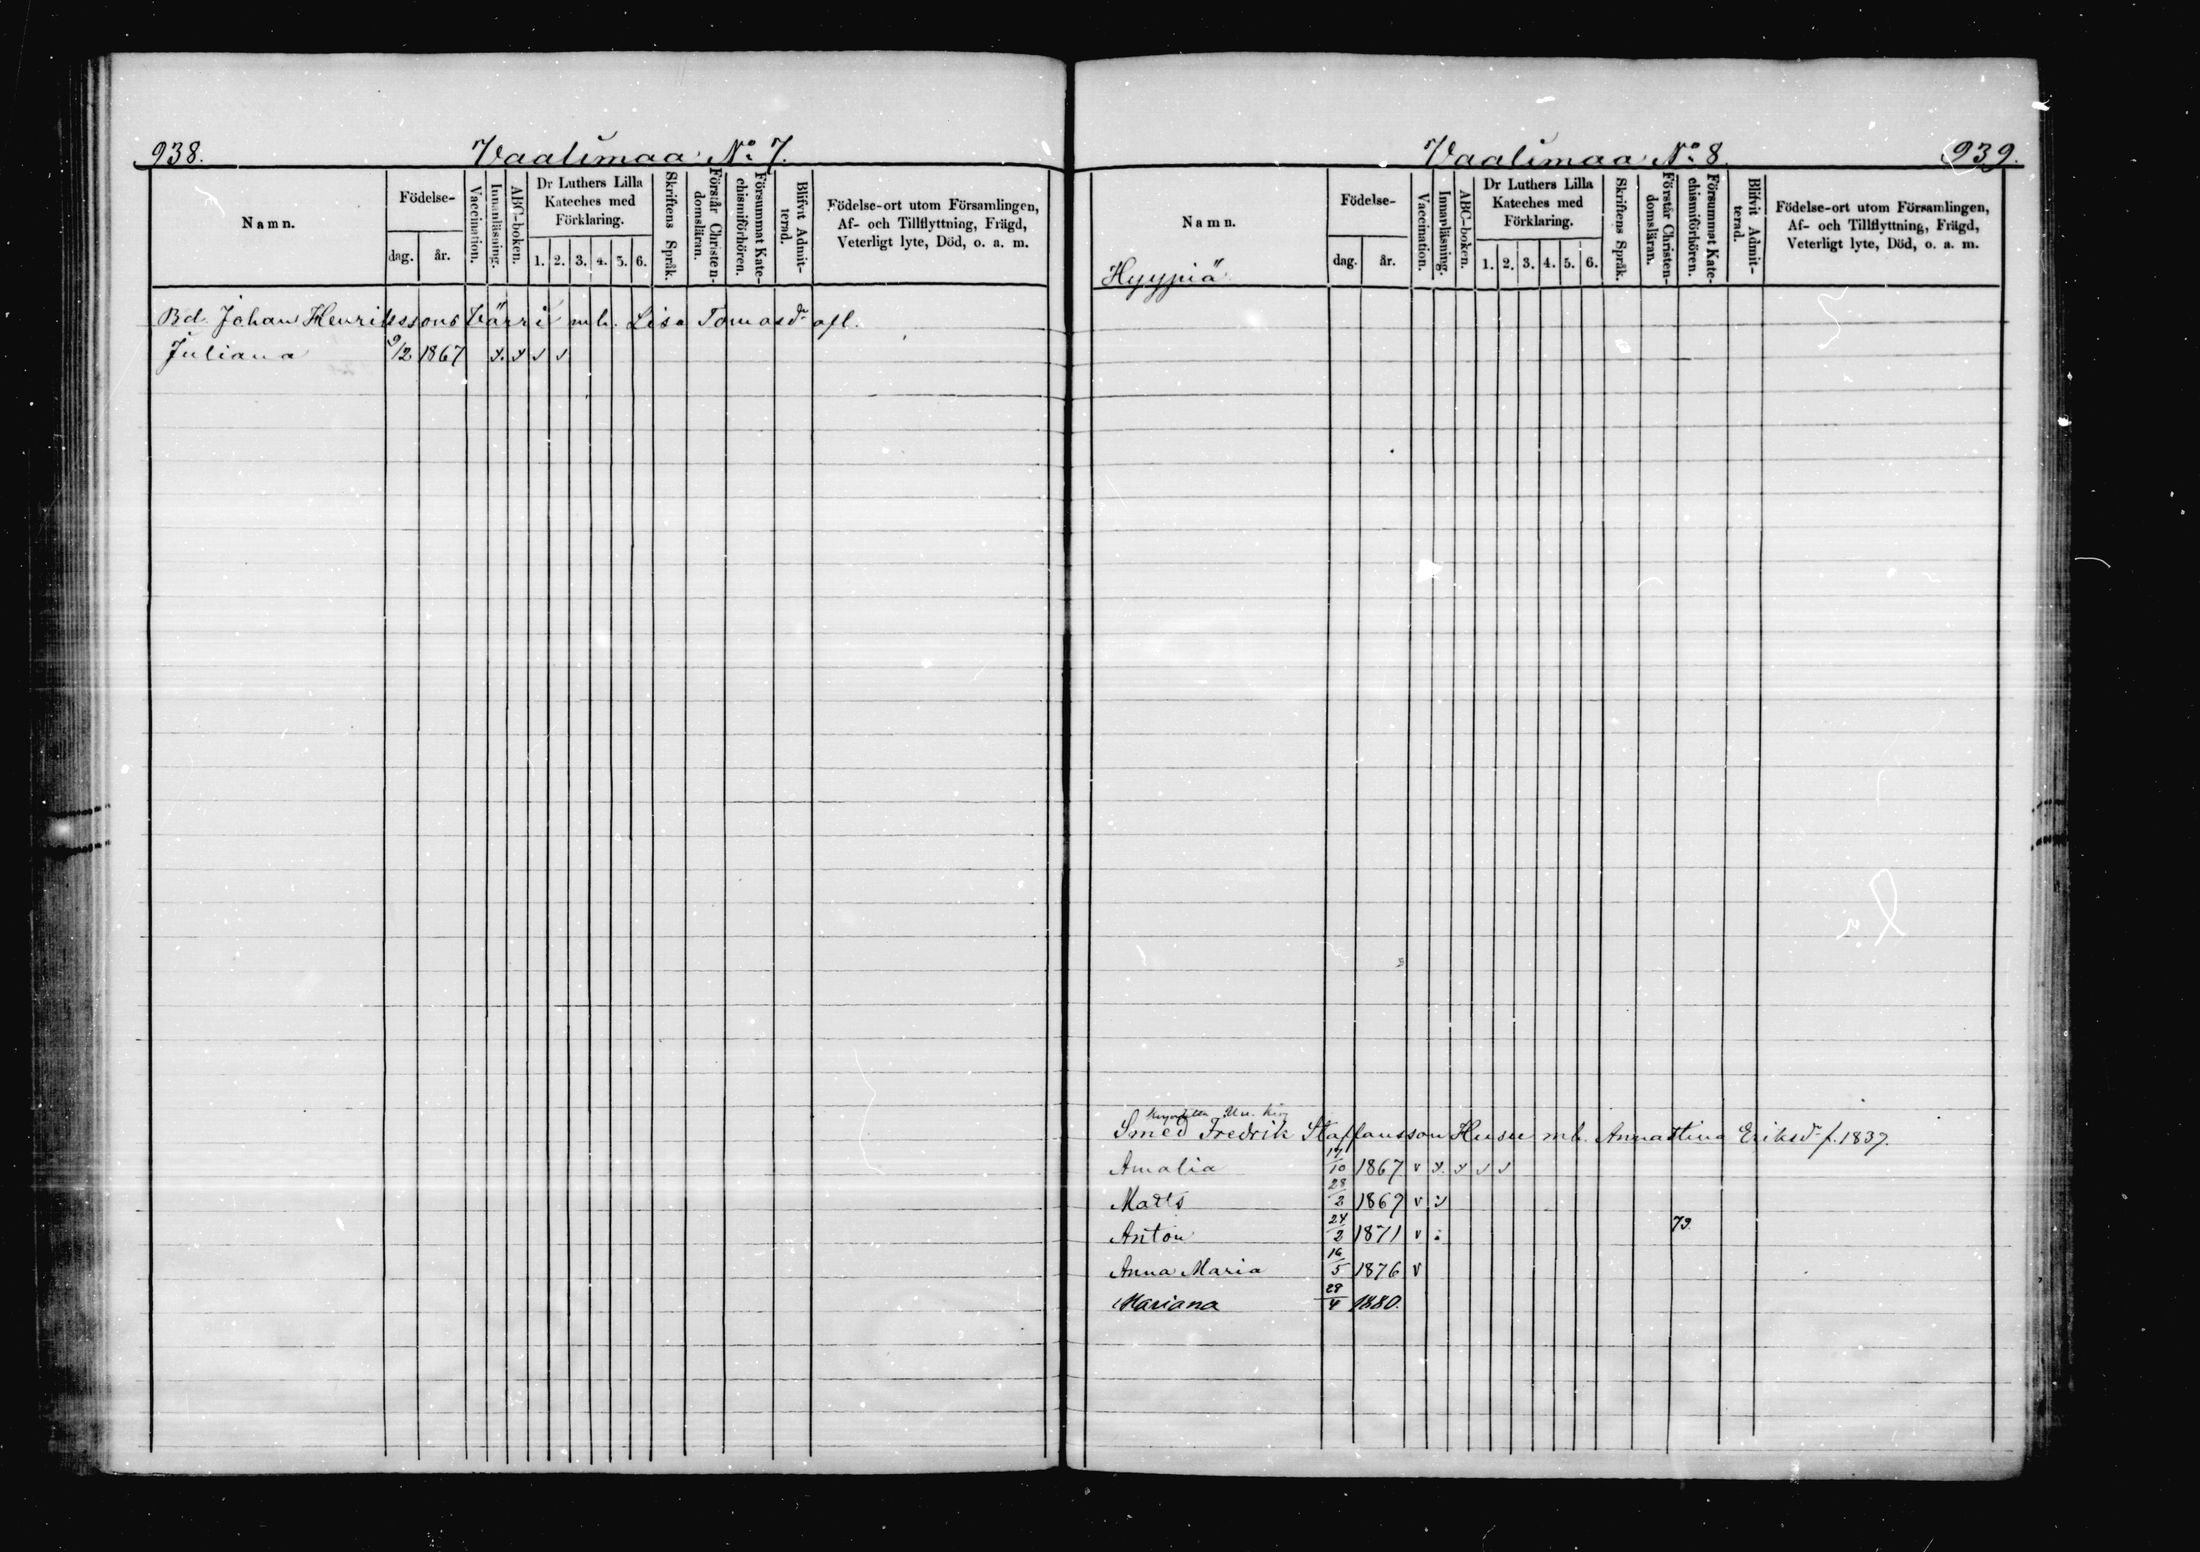 938. Vaalimaa No 7.
Namn. Födelse- dag. år. Vaccination. Innanläsning. ABC-boken. Dr Luthers Lilla Kateches med Förklaring. 1. 2. 3. 4. 5. 6. Skriftens Språk. Förstår Christendomsläran. Försummat Katechismiförhören. Blifvit Admitterad. Födelse-ort utom Församlingen, Af- och Tillflyttning, Frägd, Veterligt lyte, Död, o. a. m.
Bd. Johan Henrikssons Värri m h. Lisa Tomasdr afl.
Juliana 9/12 1867 v. v v v
Vaalimaa No 8. 939.
Namn. Födelse- dag. år. Vaccination. Innanläsning. ABC-boken. Dr Luthers Lilla Kateches med Förklaring. 1. 2. 3. 4. 5. 6. Skriftens Språk. Förstår Christendomsläran. Försummat Katechismiförhören. Blifvit Admitterad. Födelse-ort utom Församlingen, Af- och Tillflyttning, Frägd, Veterligt lyte, Död, o. a. m.
Hyypiä
Smed Fredrik Staffansson Husu m h. Annastina Eriksdr f. 1837.
Amalia 17/10 1867 v v. v v v
Matts 28/2 1869 v v
Anton 24/2 1871 v 79.
Anna Maria 16/5 1876 v
Mariana 28/4 1880.